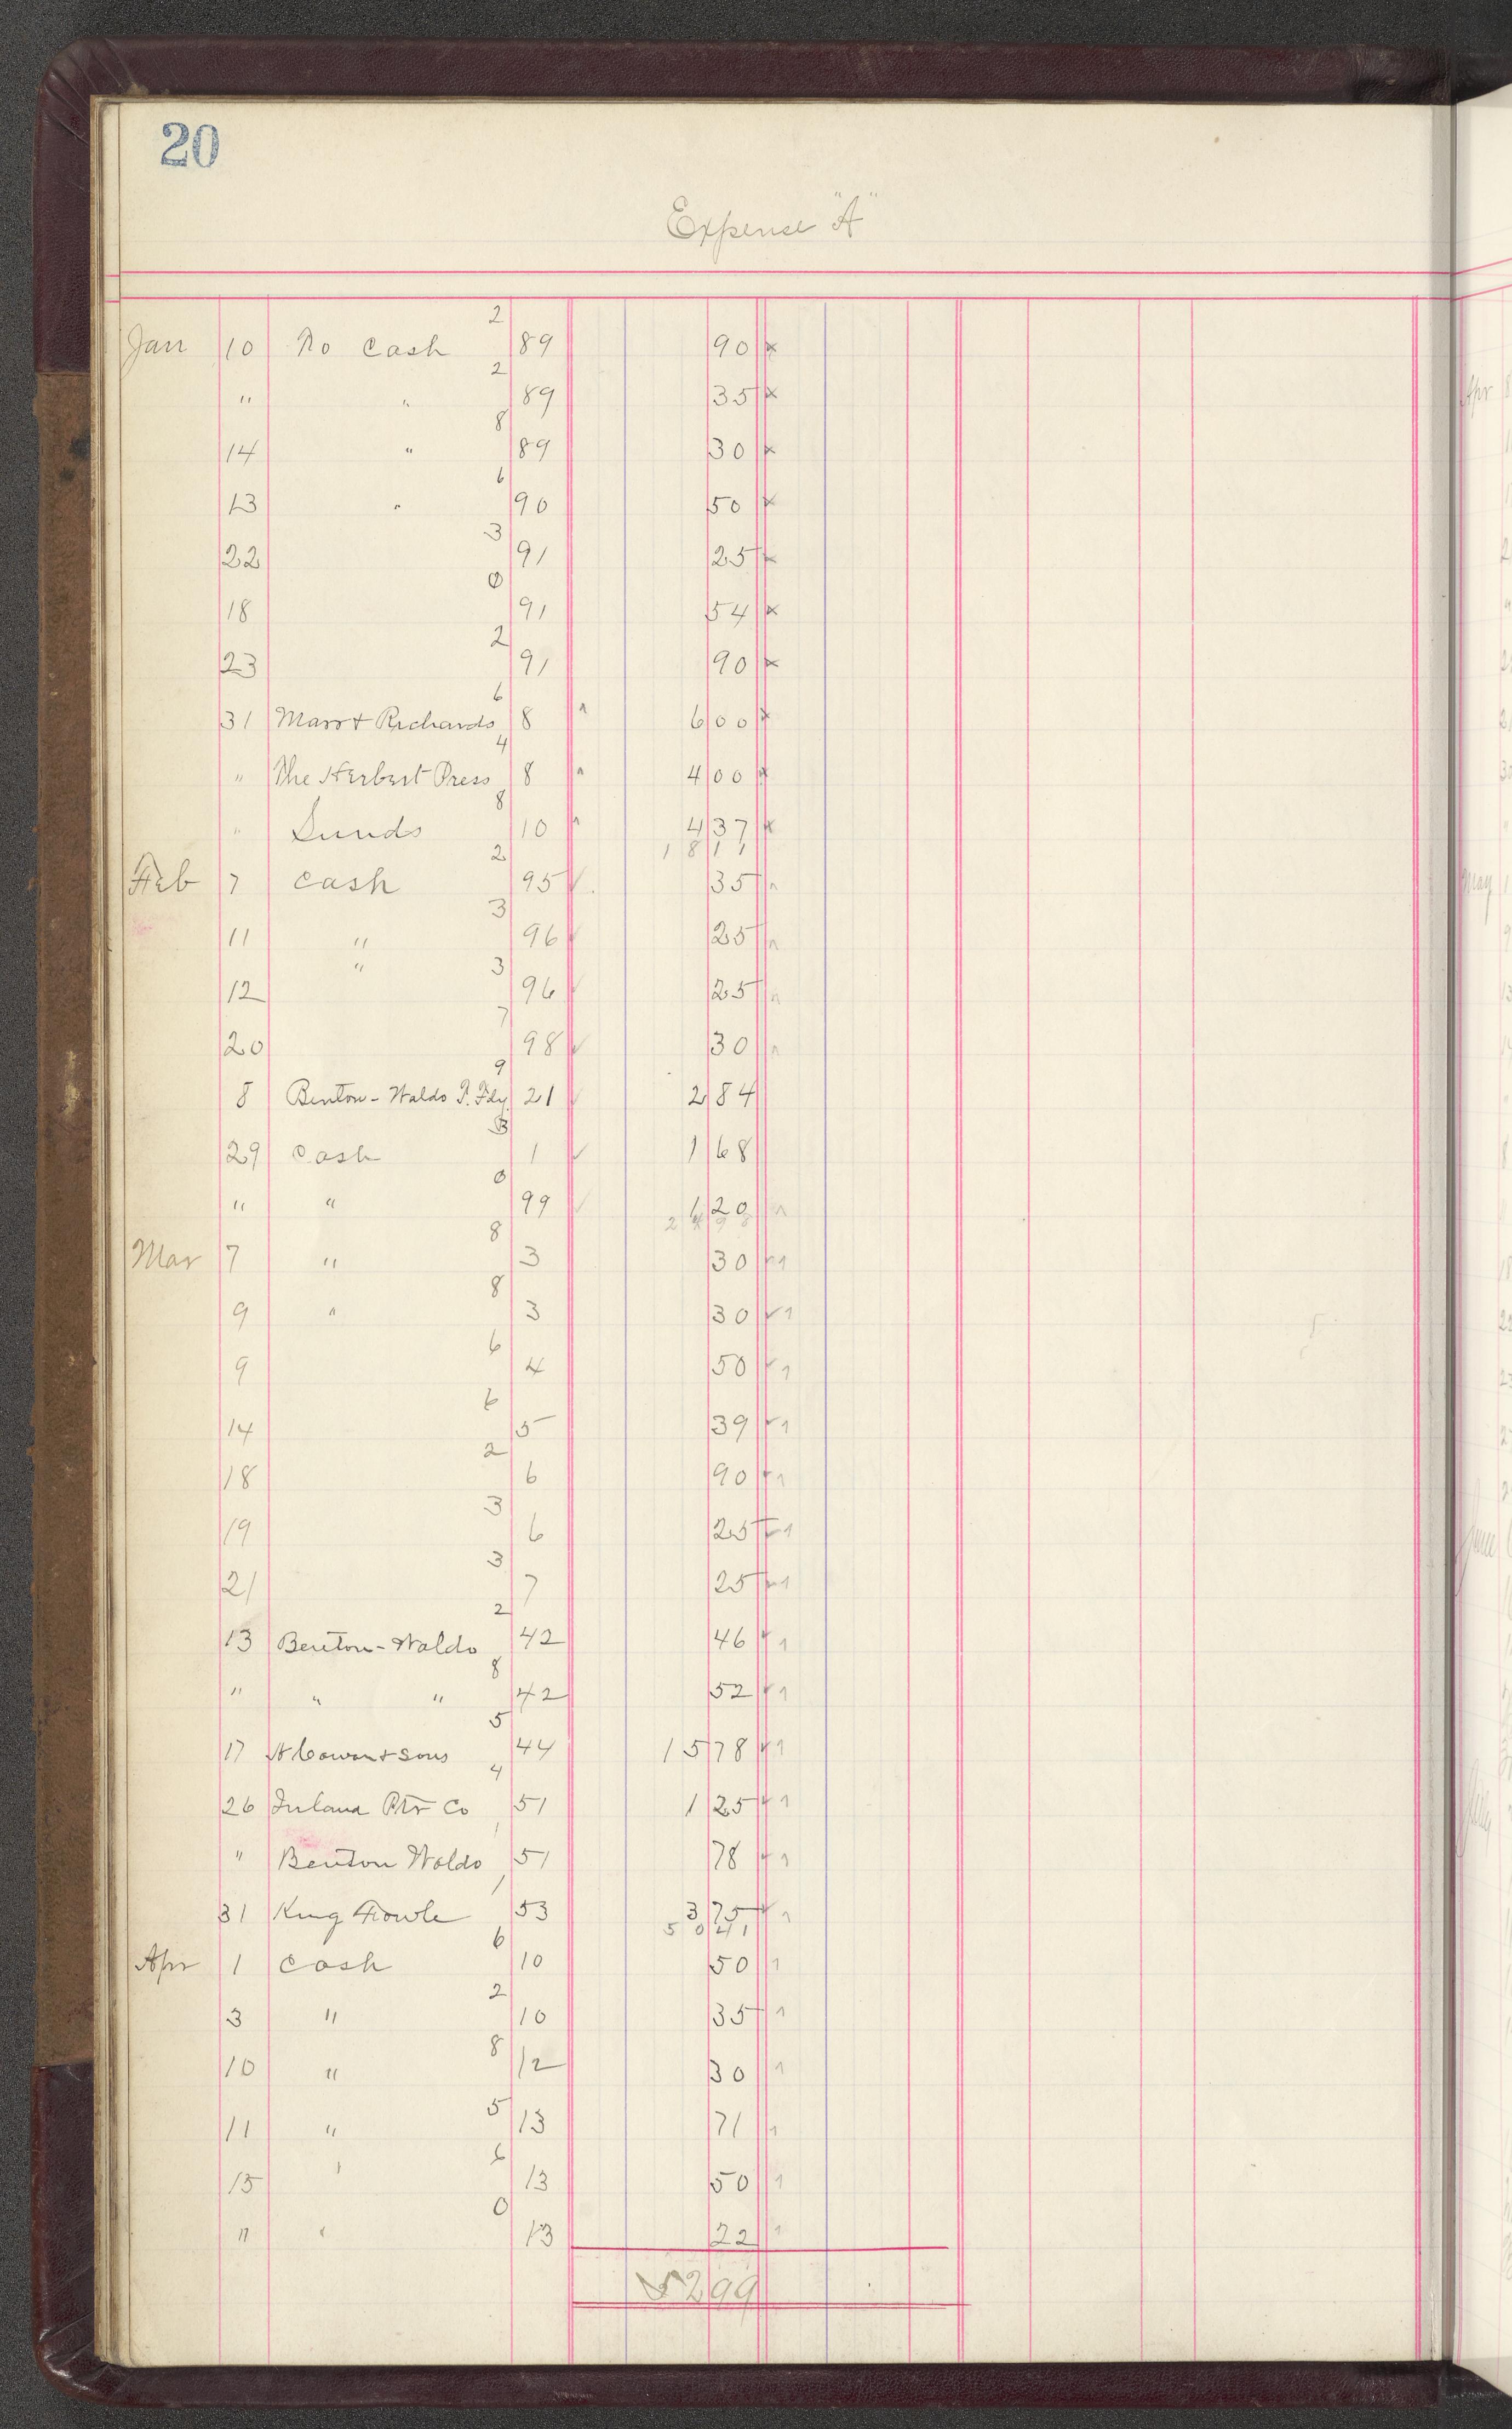 20
Expense "A"
2
Jan 10 To Cash 89 90 x
2
" " 89 35 x
8
14 " 89 30 x
6
13 " 90 50 x
3
22 91 25 x
0
18 91 54 x
2
23 91 90 x
6
31 Marr + Richards 8 6 00 x
4
" The Herbert Press 8 4 00 x
8
" Sunds 10 4 37 x
18 11
2
Feb 7 Cash 95 ✓ 35
3
11 " 96 ✓ 25
3
12 " 96 ✓ 25
7
20 98 ✓ 30
9
8 Benton-Waldo T. Fdy. 21 ✓ 2 84
3
29 Cash 1 ✓ 1 68
0
" " 99 ✓ 1 20
24 98
8
Mar 7 " 3 30 ✓
8
9 " 3 30 ✓
6
9 4 50 ✓
6
14 5 39 ✓
2
18 6 90 ✓
3
19 6 25 ✓
3
21 7 25 ✓
2
13 Benton-Waldo 42 46 ✓
8
" " " 42 52 ✓
5
17 A Cowan + Sons 44 15 78 ✓
4
26 Inland Ptr Co 51 1 25 ✓
1
" Benton Waldo 51 78 ✓
1
31 King Fowle 53 3 75 ✓
50 41
6
Apr 1 Cash 10 50
2
3 " 10 35
8
10 " 12 30
5
11 " 13 71
6
15 " 13 50
0
" " 13 22
52 99
Apr
May
June
July